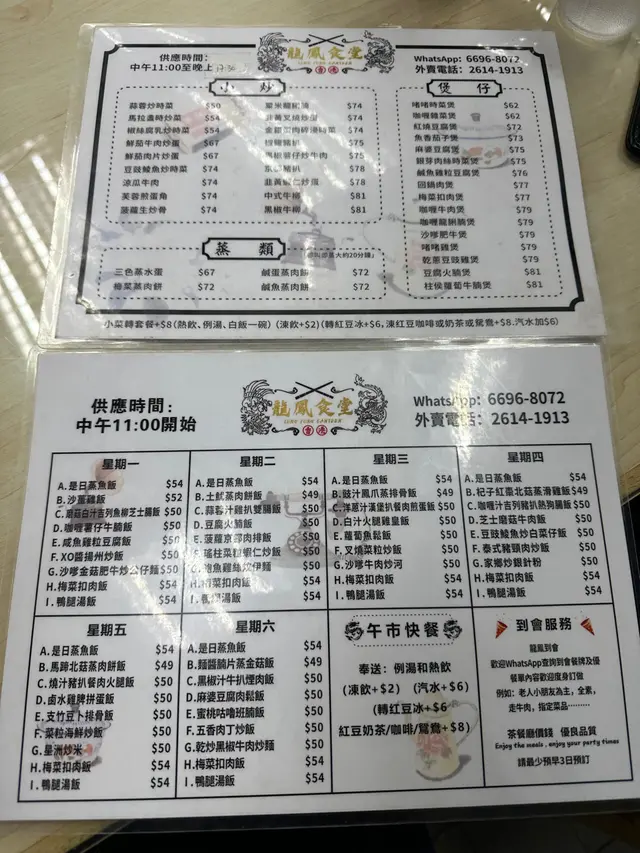 供應時間：
中午11:00至晚上
龍鳳食堂
LUNG FUNG CANTEEN
WhatsApp: 6696-8072
外賣電話：2614-1913
小炒
蒜蓉炒時菜 $50
馬拉盞時炒菜 $54
椒絲腐乳炒時菜 $54
鮮茄牛肉炒蛋 $67
鮮茄肉片炒蛋 $67
豆豉鯪魚炒時菜 $74
涼瓜牛肉 $74
芙蓉煎蛋角 $74
菠蘿生炒骨 $74
$74
韭黃叉燒炒蛋 $74
$74
椒鹽豬扒 $75
黑椒薯仔炒牛肉 $75
京都豬扒 $78
韭黃蝦仁炒蛋 $78
中式牛柳 $81
黑椒牛柳 $81
蒸類
大約20分鐘
三色蒸水蛋 $67
梅菜蒸肉餅 $72
鹹蛋蒸肉餅 $72
鹹魚蒸肉餅 $72
煲仔
啫啫時菜煲 $62
咖喱雜菜煲 $62
紅燒豆腐煲 $72
魚香茄子煲 $73
麻婆豆腐煲 $75
銀芽肉絲時菜煲 $75
鹹魚雞粒豆腐煲 $76
回鍋肉煲 $77
梅菜扣肉煲 $77
咖喱牛肉煲 $79
咖喱龍脷腩煲 $79
沙嗲肥牛煲 $79
啫啫雞煲 $79
乾蔥豆豉雞煲 $79
豆腐火腩煲 $81
柱侯蘿蔔牛腩煲 $81
小菜轉套餐+$8(熱飲、例湯、白飯一碗) (凍飲+$2)(轉紅豆冰+$6,凍紅豆咖啡或奶茶或鴛鴦+$8.汽水加$6)
供應時間：
中午11:00開始
龍鳳食堂
LUNG FUNG CANTEEN
WhatsApp: 6696-8072
外賣電話：2614-1913
星期一
A.是日蒸魚飯 $54
B.沙薑雞飯 $52
C.蘑菇白汁吉列魚柳芝士腸飯 $50
D.咖喱薯仔牛腩飯 $50
E.咸魚雞粒豆腐飯 $50
F.XO醬揚州炒飯 $50
G.沙嗲金菇肥牛炒公仔麵 $50
H.梅菜扣肉飯 $54
I.鴨腿湯飯 $54
星期二
A.是日蒸魚飯 $54
B.土魷蒸肉餅飯 $49
C.蒜蓉汁雞扒雙腸飯 $50
D.豆腐火腩飯 $50
E.菠蘿京嘢肉排飯 $50
F.瑤柱菜粒蝦仁炒飯 $50
G.鮑魚雞絲炆伊麵 $50
H.梅菜扣肉飯 $54
I.鴨腿湯飯 $54
星期三
A.是日蒸魚飯 $54
B.豉汁鳳爪蒸排骨飯 $49
C.洋蔥汁漢堡扒餐肉煎蛋飯 $50
D.白汁火腿雞皇飯 $50
E.蘿蔔魚鬆飯 $50
F.叉燒菜粒炒飯 $50
G.沙嗲牛肉炒河 $50
H.梅菜扣肉飯 $54
I.鴨腿湯飯 $54
星期四
A.是日蒸魚飯 $54
B.杞子紅棗北菇蒸滑雞飯 $49
C.咖喱汁吉列豬扒熱狗腸飯 $50
D.芝士磨菇牛肉飯 $50
E.豆豉鯪魚炒白菜仔飯 $50
F.泰式豬頸肉炒飯 $50
G.家鄉炒銀針粉 $50
H.梅菜扣肉飯 $54
I.鴨腿湯飯 $54
星期五
A.是日蒸魚飯 $54
B.馬蹄北菇蒸肉餅飯 $49
C.燒汁豬扒餐肉火腿飯 $50
D.鹵水雞脾拼蛋飯 $50
E.支竹豆卜排骨飯 $50
F.菜粒海鮮炒飯 $50
G.星洲炒米 $50
H.梅菜扣肉飯 $54
I.鴨腿湯飯 $54
星期六
A.是日蒸魚飯 $54
B.麵醬腩片蒸金菇飯 $49
C.黑椒汁牛扒煙肉飯 $50
D.麻婆豆腐肉鬆飯 $50
E.蜜桃咕嚕班腩飯 $50
F.五香肉丁炒飯 $50
G.乾炒黑椒牛肉炒麵 $50
H.梅菜扣肉飯 $54
I.鴨腿湯飯 $54
午市快餐
奉送：例湯和熱飲
(凍飲+$2) (汽水+$6)
(轉紅豆冰+$6
紅豆奶茶/咖啡/鴛鴦+$8)
到會服務
龍鳳到會
歡迎WhatsApp查詢到會餐牌及優
餐單內容歡迎度身訂做
例如：老人小朋友為主，全素，
走牛肉，指定菜品………
茶餐廳價錢 優良品質
Enjoy the meals , enjoy your party times
請最少預早3日預訂